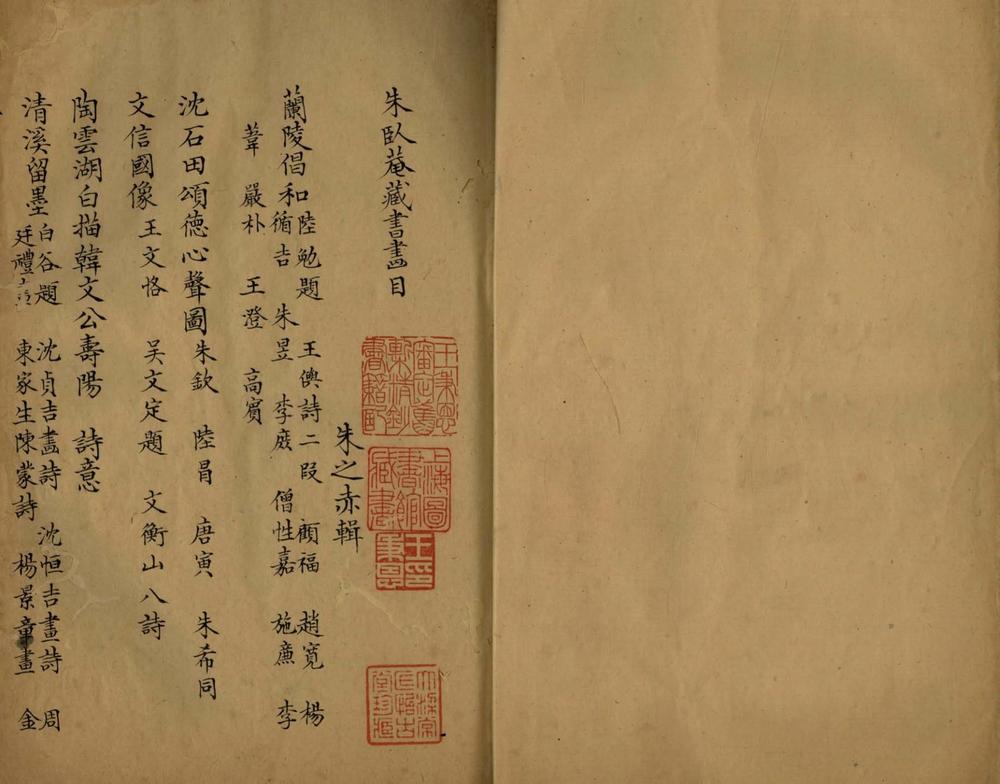 朱臥菴藏書畵目
朱之赤輯
蘭陵倡和陸勉題 王㒜詩二段 顧福 趙寬 楊
循吉 朱昱 李庭 僧性嘉 施廉 李
葦 嚴朴 王澄 高賓
沈石田頌德心聲圖朱欽 陸冐 唐寅 朱希同
文信國像王文恪 吳文定題 文衡山八詩
陶雲湖白描韓文公壽陽 詩意
清溪留墨白谷題 沈貞吉畫詩 沈恒吉畫詩 周
廷禮 東家生陳蒙詩 楊景 畫 金
王秉恩審定舊槧精鈔書籍記
上海圖書館藏書
王印秉恩